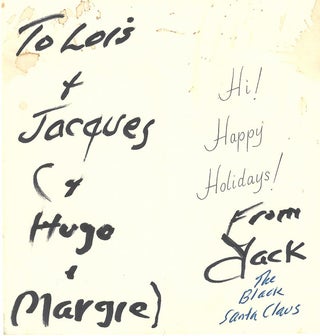 To Lois
+
Jacques
( +
Hugo
+
Margie)
Hi!
Happy
Holidays!
From
Jack
The
Black
Santa Claus